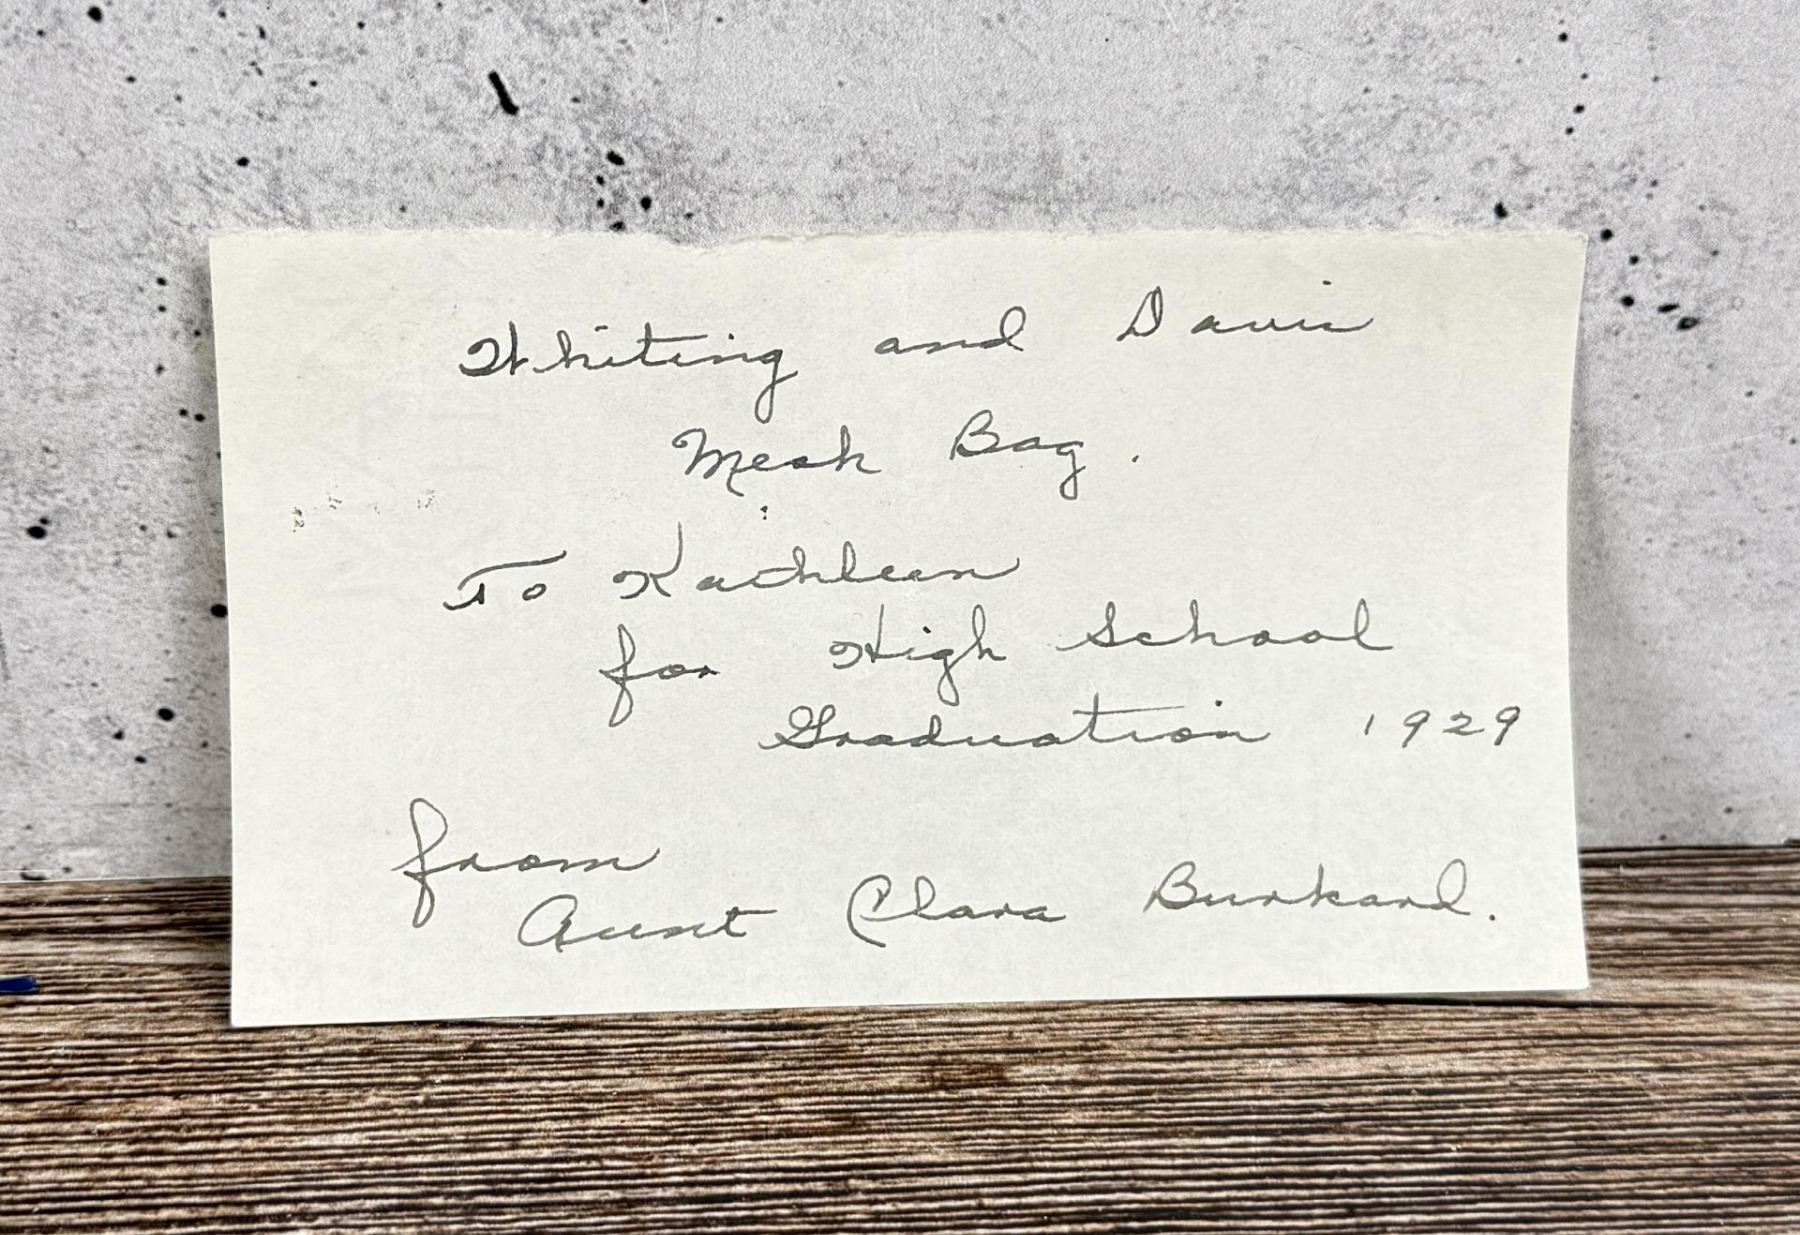 Whiting and Davis
Mesh Bag.
To Kathleen
for High School
Graduation 1929
from
Aunt Clara Burkard.